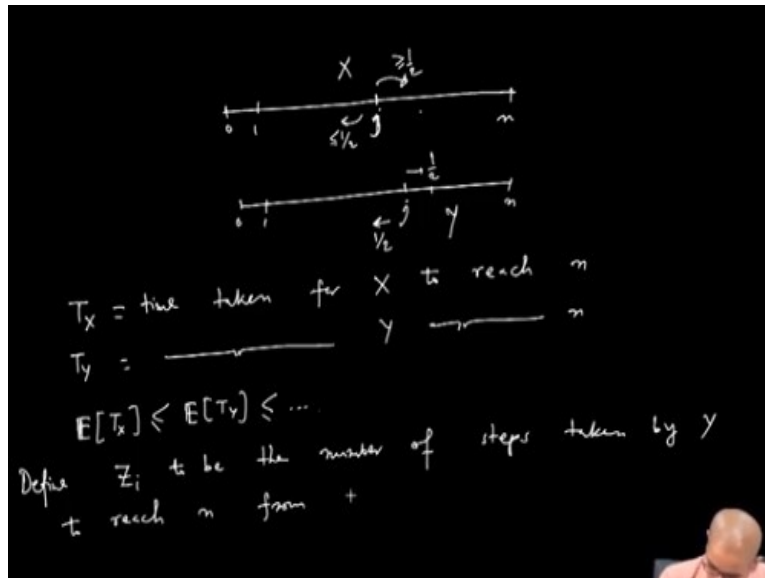 X ≥1/2
0 1 ≤1/2 j n
→ 1/2
0 1 ← 1/2 j Y n
T_X = time taken for X to reach n
T_Y = ———— Y ———— n
E[T_X] ≤ E[T_Y] ≤ ...
Define Z_i to be the number of steps taken by Y
to reach n from